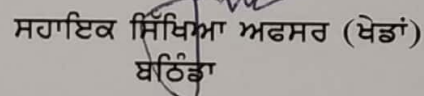 ਸਹਾਇਕ ਸਿੱਖਿਆ ਅਫਸਰ (ਖੇਡਾਂ)
ਬਠਿੰਡਾ